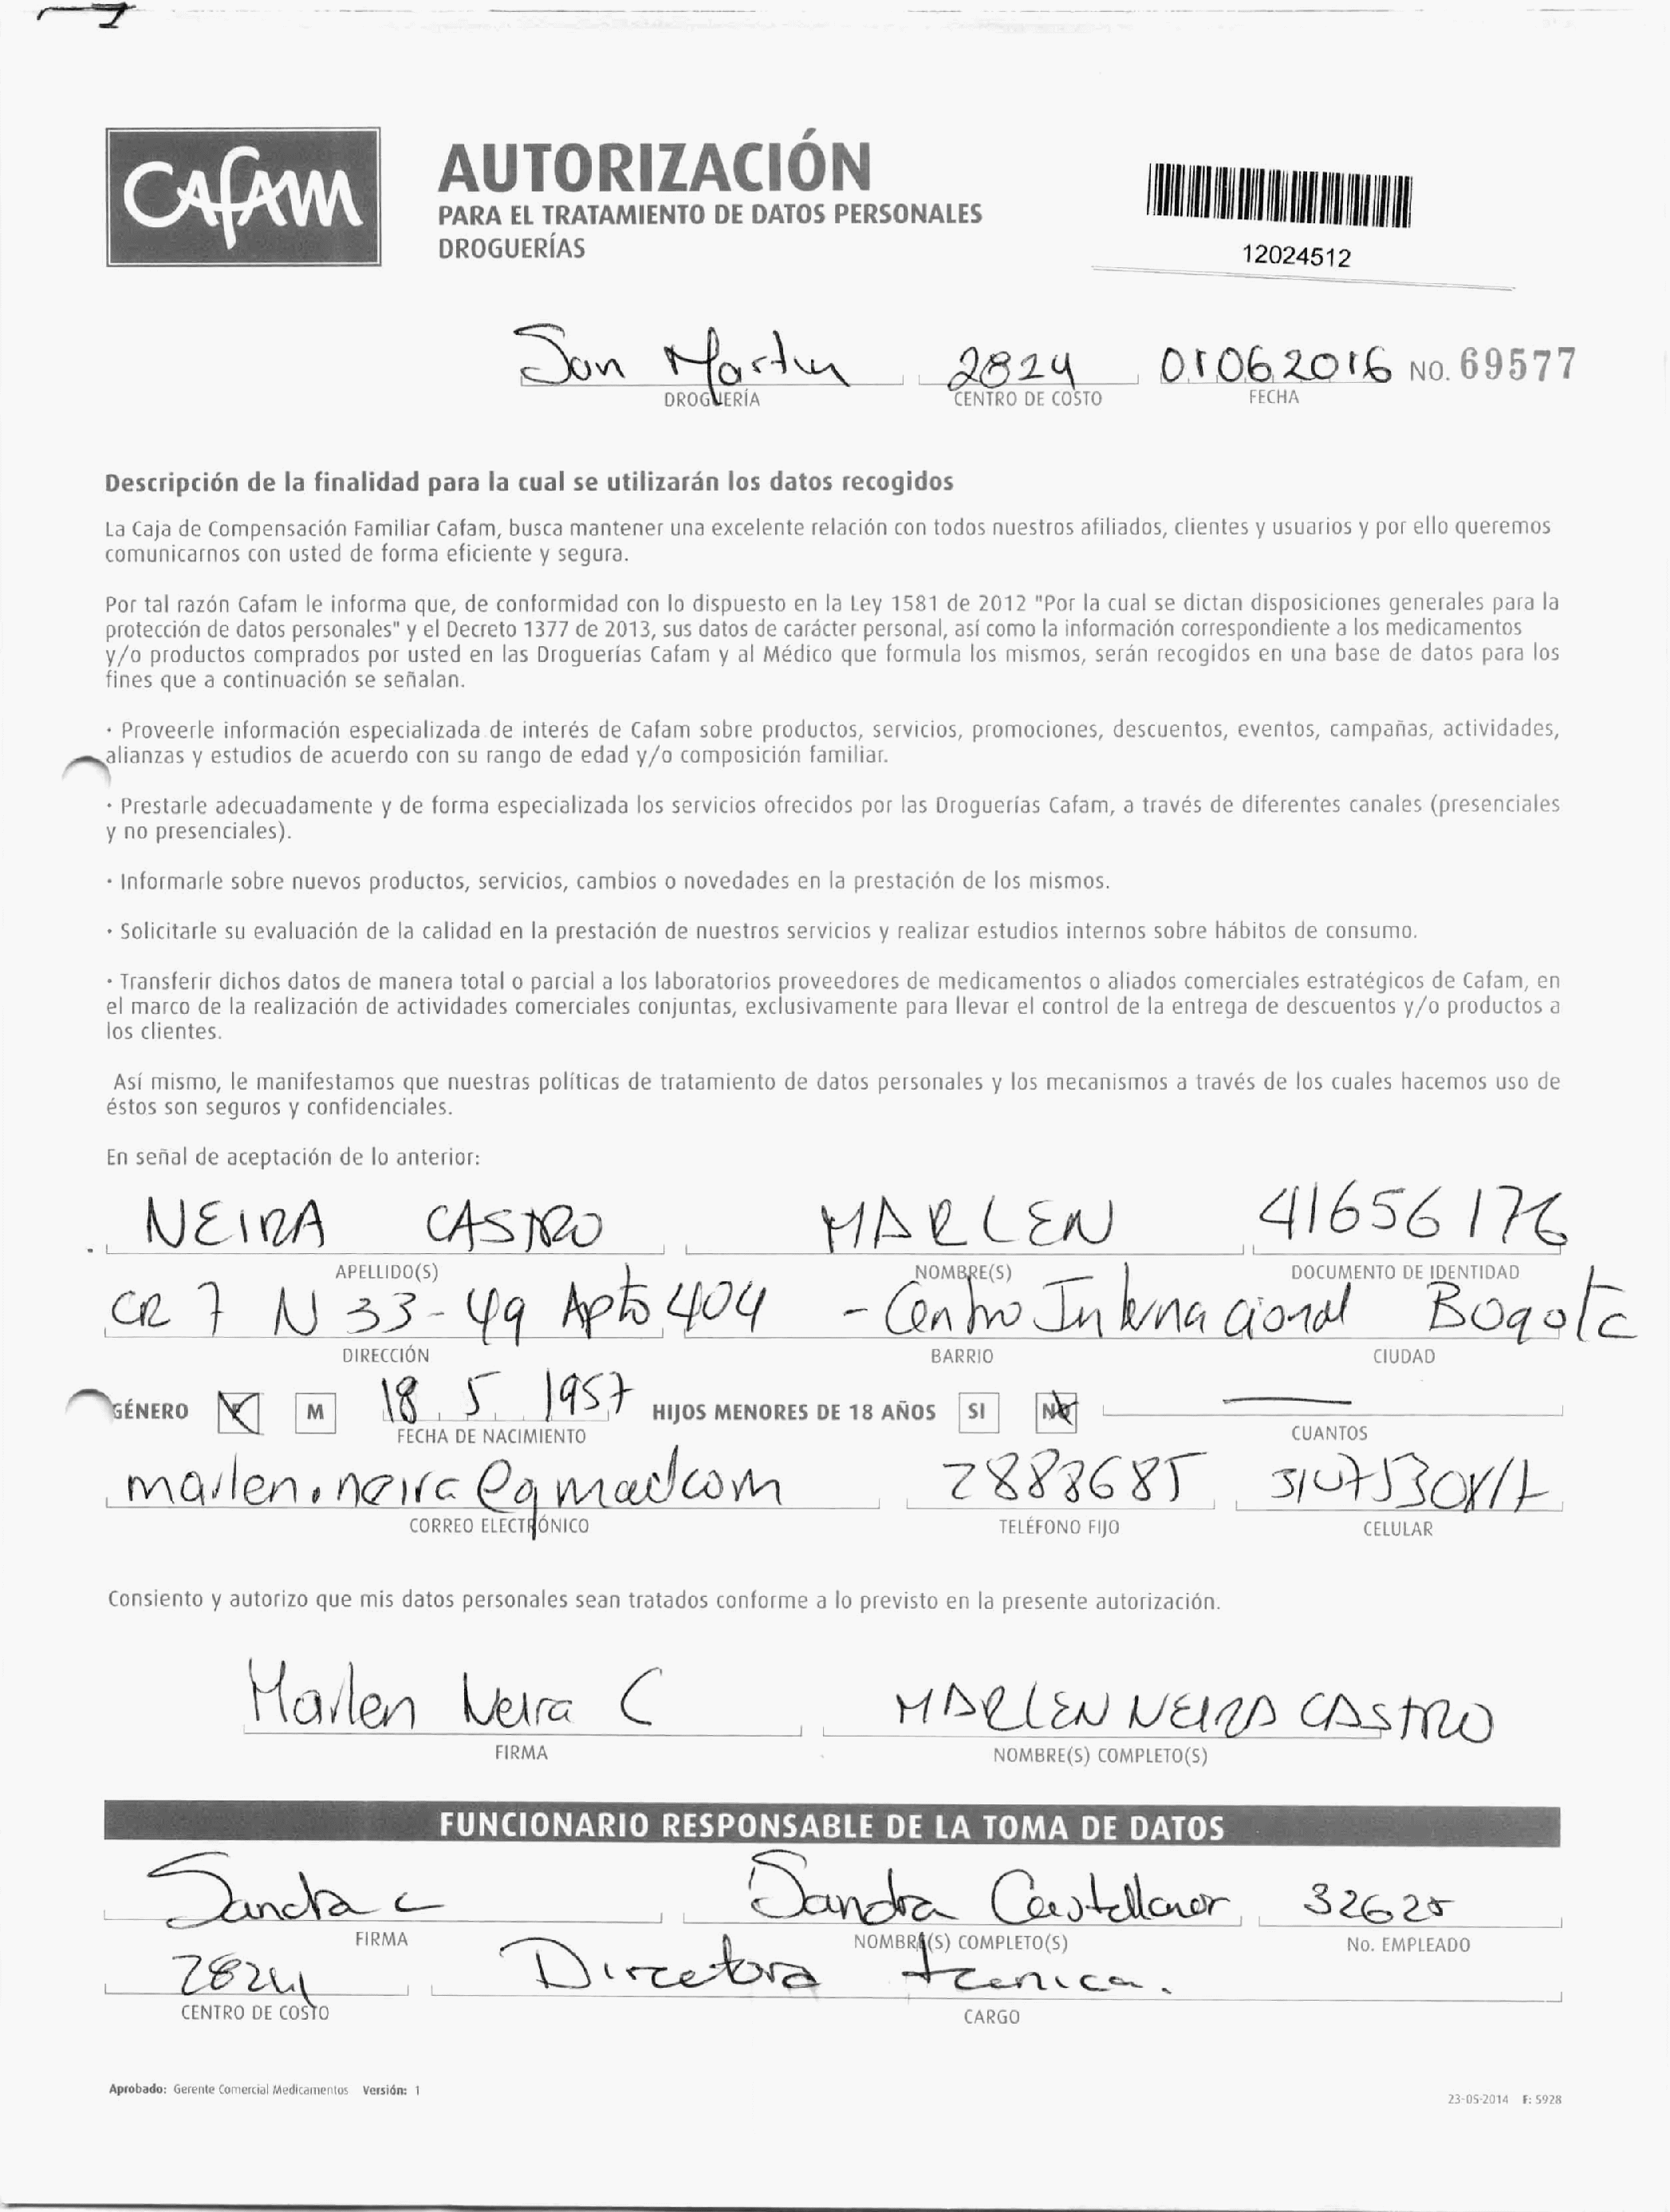 CAFAM
AUTORIZACIÓN
PARA EL TRATAMIENTO DE DATOS PERSONALES
DROGUERÍAS
12024512
San Martin 2824 01062016 NO. 69577
DROGUERÍA CENTRO DE COSTO FECHA
Descripción de la finalidad para la cual se utilizarán los datos recogidos
La Caja de Compensación Familiar Cafam, busca mantener una excelente relación con todos nuestros afiliados, clientes y usuarios y por ello queremos
comunicarnos con usted de forma eficiente y segura.
Por tal razón Cafam le informa que, de conformidad con lo dispuesto en la Ley 1581 de 2012 "Por la cual se dictan disposiciones generales para la
protección de datos personales" y el Decreto 1377 de 2013, sus datos de carácter personal, así como la información correspondiente a los medicamentos
y/o productos comprados por usted en las Droguerías Cafam y al Médico que formula los mismos, serán recogidos en una base de datos para los
fines que a continuación se señalan.
· Proveerle información especializada de interés de Cafam sobre productos, servicios, promociones, descuentos, eventos, campañas, actividades,
alianzas y estudios de acuerdo con su rango de edad y/o composición familiar.
· Prestarle adecuadamente y de forma especializada los servicios ofrecidos por las Droguerías Cafam, a través de diferentes canales (presenciales
y no presenciales).
· Informarle sobre nuevos productos, servicios, cambios o novedades en la prestación de los mismos.
· Solicitarle su evaluación de la calidad en la prestación de nuestros servicios y realizar estudios internos sobre hábitos de consumo.
· Transferir dichos datos de manera total o parcial a los laboratorios proveedores de medicamentos o aliados comerciales estratégicos de Cafam, en
el marco de la realización de actividades comerciales conjuntas, exclusivamente para llevar el control de la entrega de descuentos y/o productos a
los clientes.
Así mismo, le manifestamos que nuestras políticas de tratamiento de datos personales y los mecanismos a través de los cuales hacemos uso de
éstos son seguros y confidenciales.
En señal de aceptación de lo anterior:
NEIRA CASTRO MARLEN 41656176
APELLIDO(S) NOMBRE(S) DOCUMENTO DE IDENTIDAD
CR 7 N 33-49 Apto 404 - Centro Internacional Bogota
DIRECCIÓN BARRIO CIUDAD
GÉNERO F M 18 5 1957 HIJOS MENORES DE 18 AÑOS SI NO
FECHA DE NACIMIENTO CUANTOS
marlen.neira@gmail.com 2888685
CORREO ELECTRÓNICO TELÉFONO FIJO CELULAR
Consiento y autorizo que mis datos personales sean tratados conforme a lo previsto en la presente autorización.
Marlen Neira C MARLEN NEIRA CASTRO
FIRMA NOMBRE(S) COMPLETO(S)
FUNCIONARIO RESPONSABLE DE LA TOMA DE DATOS
Sandra C Sandra Castellanos 32625
FIRMA NOMBRE(S) COMPLETO(S) No. EMPLEADO
2824 Directora tecnica.
CENTRO DE COSTO CARGO
Aprobado: Gerente Comercial Medicamentos Versión: 1
23-05-2014 F: 5928